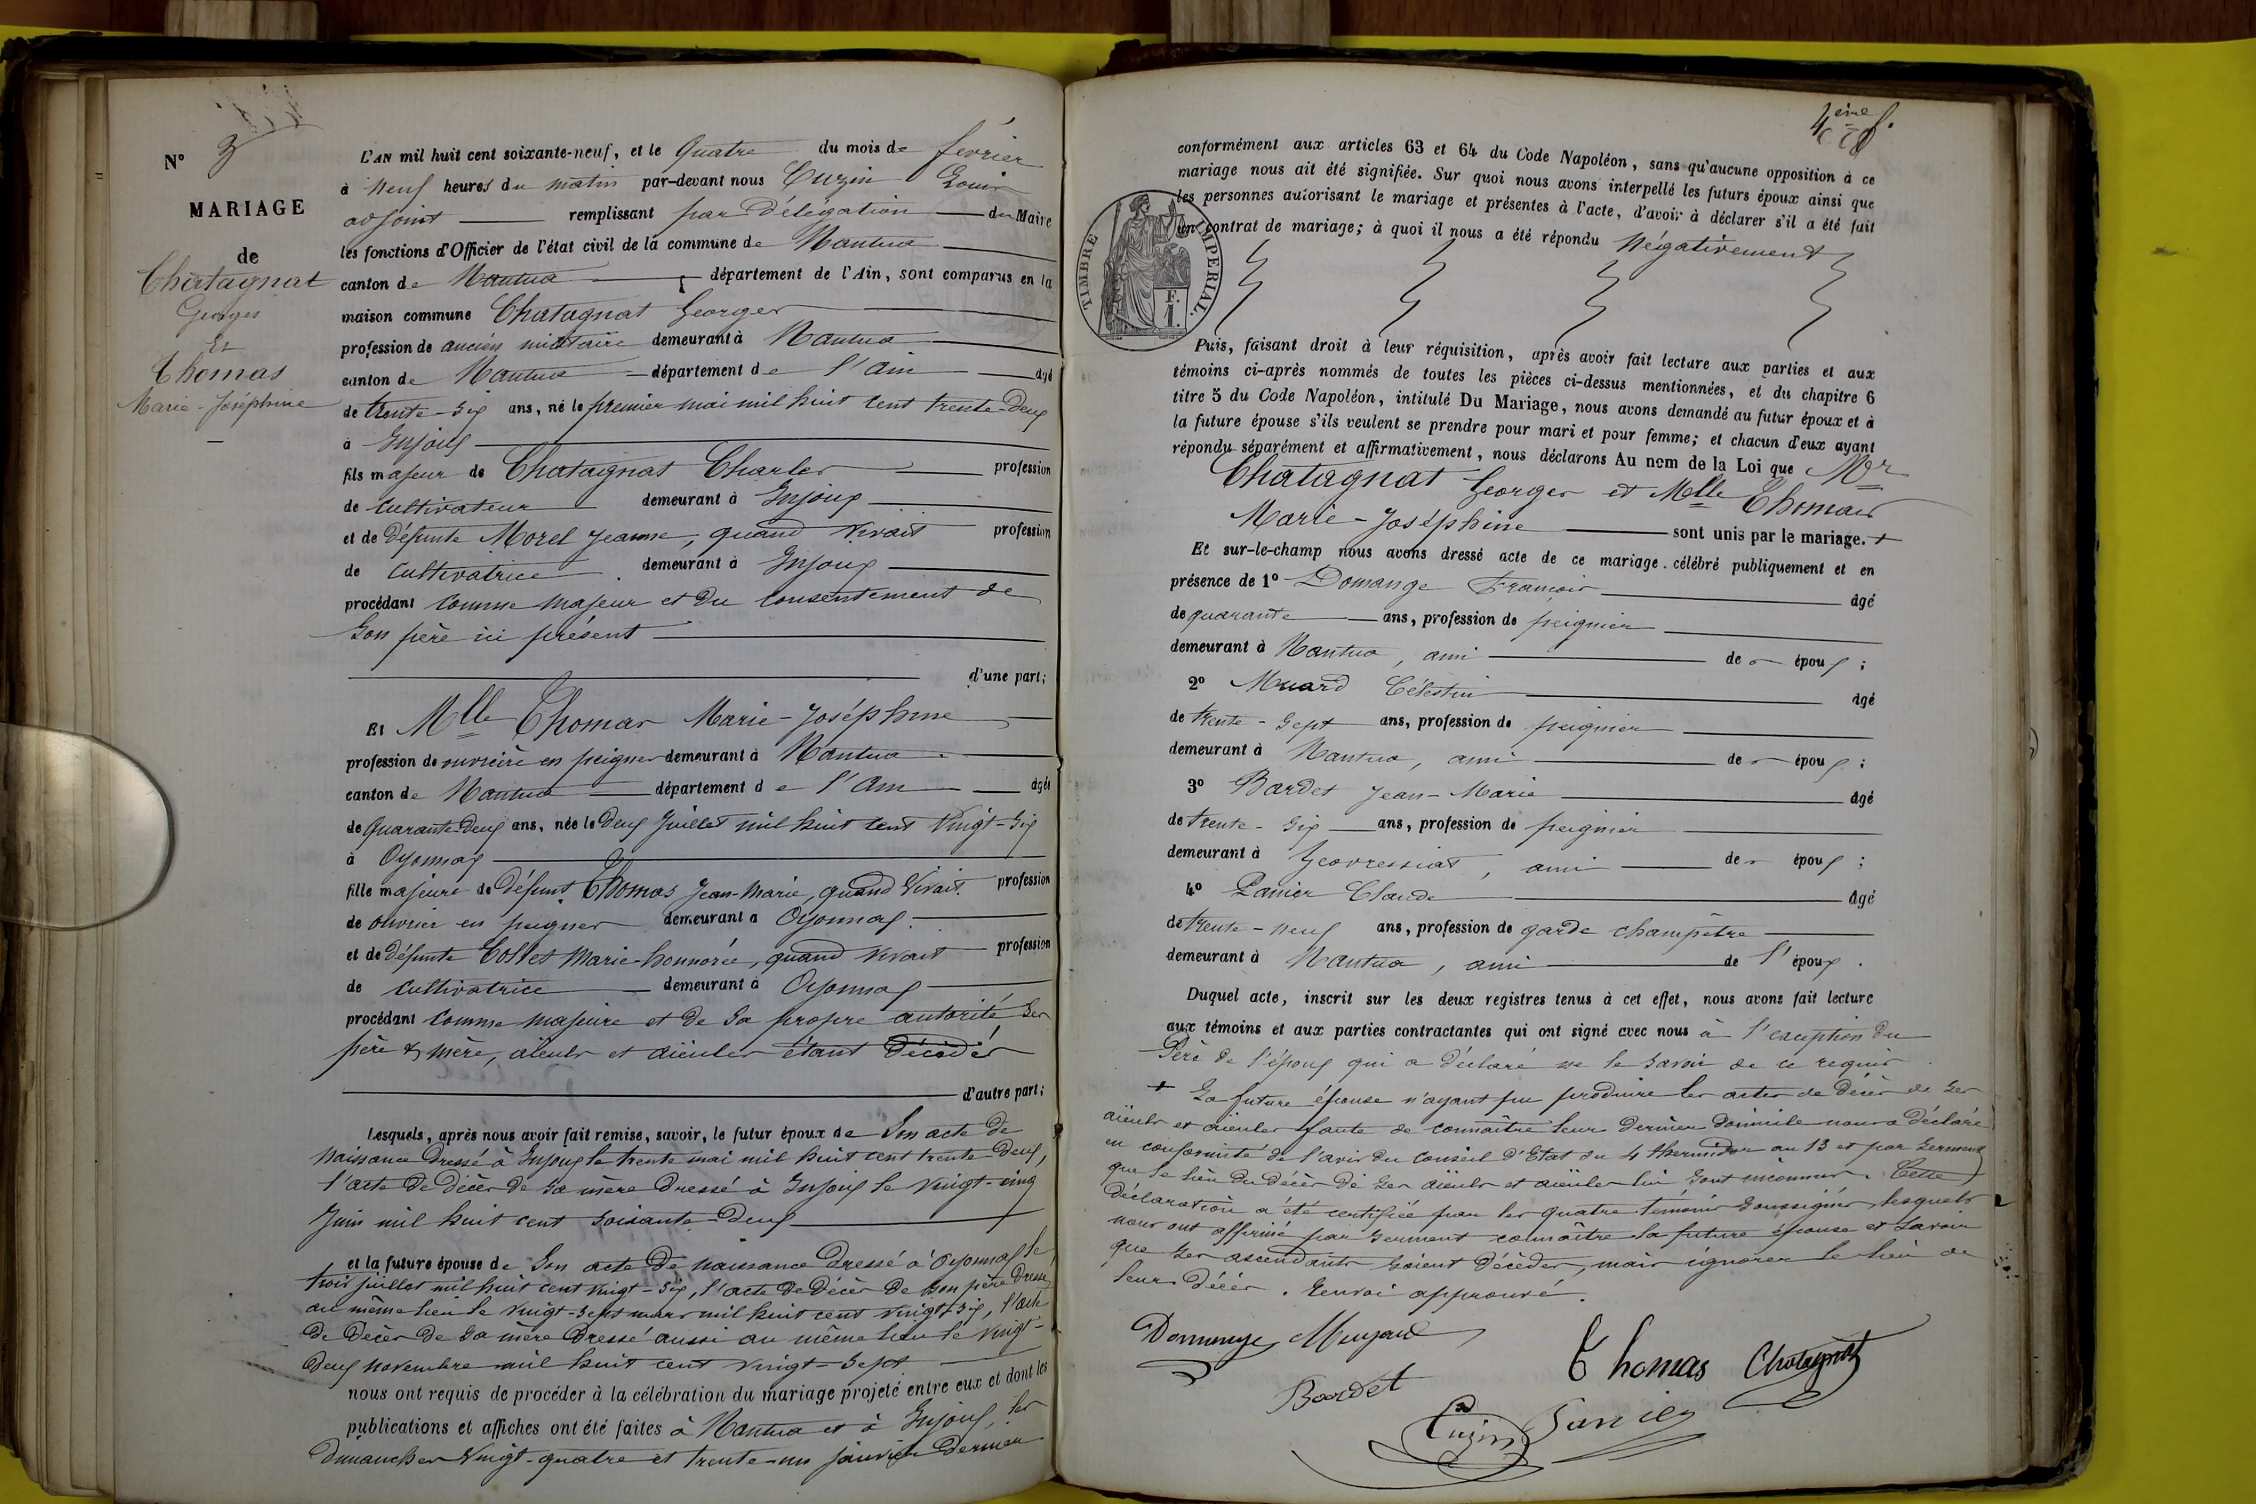 N° 3
MARIAGE
de
Chatagnat
Georges
Et
Thomas
Marie-Joséphine
L'AN mil huit cent soixante-neuf, et le Quatre du mois de février
à Neuf heures du matin par-devant nous Cuzin Louis
adjoint remplissant par délégation du Maire
les fonctions d'Officier de l'état civil de la commune de Nantua
canton de Nantua département de l'Ain, sont comparus en la
maison commune Chatagnat Georges
profession de ancien militaire demeurant à Nantua
canton de Nantua département de l'Ain âgé
de trente-six ans, né le premier mai mil huit cent trente-deux
à Injoux
fils majeur de Chatagnat Charles profession
de cultivateur demeurant à Injoux
et de défunte Morel Jeanne, quand vivait profession
de cultivatrice demeurant à Injoux
procédant comme majeur et du consentement de
son père ici présent
d'une part;
Et Mlle Thomas Marie-Joséphine
profession de ouvrière en peignes demeurant à Nantua
canton de Nantua département de l'Ain âgée
de Quarante-deux ans, née le deux Juillet mil huit cent vingt-six
à Oyonnax
fille majeure de défunt Thomas Jean-Marie, quand vivait profession
de ouvrier en peignes demeurant à Oyonnax
et de défunte Collet Marie-honnorée, quand vivait profession
de cultivatrice demeurant à Oyonnax
procédant comme majeure et de sa propre autorité ses
père & mère, aïeuls et aïeules étant décédés
d'autre part;
Lesquels, après nous avoir fait remise, savoir, le futur époux de Son acte de
naissance dressé à Injoux le trente mai mil huit cent trente-deux,
l'acte de décès de sa mère dressé à Injoux le vingt-cinq
Juin mil huit cent soixante-deux
et la future épouse de Son acte de naissance dressé à Oyonnax le
trois juillet mil huit cent vingt-six, l'acte de décès de son père dressé
au même lieu le vingt-sept mars mil huit cent vingt-six, l'acte
de décès de sa mère dressé aussi au même lieu le vingt-
deux novembre mil huit cent vingt-sept
nous ont requis de procéder à la célébration du mariage projeté entre eux et dont les
publications et affiches ont été faites à Nantua et à Injoux, les
Dimanches vingt-quatre et trente-un janvier dernier
4ème f.
conformément aux articles 63 et 64 du Code Napoléon, sans qu'aucune opposition à ce
mariage nous ait été signifiée. Sur quoi nous avons interpellé les futurs époux ainsi que
les personnes autorisant le mariage et présentes à l'acte, d'avoir à déclarer s'il a été fait
un contrat de mariage; à quoi il nous a été répondu Négativement
TIMBRE IMPERIAL.
F.
1.
Puis, faisant droit à leur réquisition, après avoir fait lecture aux parties et aux
témoins ci-après nommés de toutes les pièces ci-dessus mentionnées, et du chapitre 6
titre 5 du Code Napoléon, intitulé Du Mariage, nous avons demandé au futur époux et à
la future épouse s'ils veulent se prendre pour mari et pour femme; et chacun d'eux ayant
répondu séparément et affirmativement, nous déclarons Au nom de la Loi que Mr
Chatagnat Georges et Mlle Thomas
Marie-Joséphine sont unis par le mariage. +
Et sur-le-champ nous avons dressé acte de ce mariage. célébré publiquement et en
présence de 1° Domange François âgé
de quarante ans, profession de peignier
demeurant à Nantua, ami de époux;
2° Muard Célestin âgé
de trente-sept ans, profession de peignier
demeurant à Nantua, ami de époux;
3° Bardet Jean-Marie âgé
de trente-six ans, profession de peignier
demeurant à Geovressiat, ami de époux;
4° Panier Claude âgé
de trente-neuf ans, profession de garde champêtre
demeurant à Nantua, ami de l'époux.
Duquel acte, inscrit sur les deux registres tenus à cet effet, nous avons fait lecture
aux témoins et aux parties contractantes qui ont signé avec nous à l'exception du
Père de l'époux qui a déclaré ne le savoir de ce requis
+ La future épouse n'ayant pu produire les actes de décès de ses
aïeuls et aïeules faute de connaître leur dernier domicile nous a déclaré
en conformité de l'avis du Conseil d'Etat du 4 thermidor an 13 et par serment
que le lieu du décès de ses aïeuls et aïeules lui sont inconnus. Cette
déclaration a été certifiée par les quatre témoins soussignés, lesquels
nous ont affirmé par serment connaître la future épouse et savoir
que ses ascendants soient décédés, mais ignorer le lieu de
leur décès. Renvoi approuvé.
Thomas Chatagnat
Bardet
Cuzin